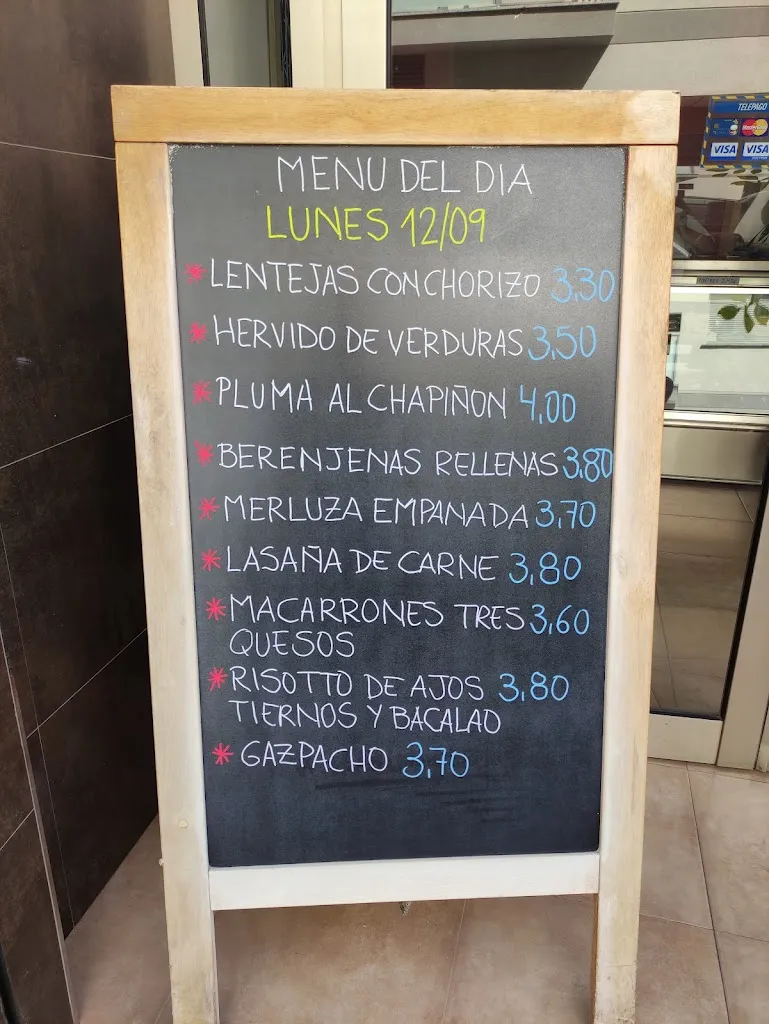 MENU DEL DIA
LUNES 12/09
* LENTEJAS CON CHORIZO 3.30
* HERVIDO DE VERDURAS 3,50
* PLUMA AL CHAPIÑON 4,00
* BERENJENAS RELLENAS 3,80
* MERLUZA EMPANADA 3,70
* LASAÑA DE CARNE 3,80
* MACARRONES TRES 3,60
QUESOS
* RISOTTO DE AJOS 3,80
TIERNOS Y BACALAO
* GAZPACHO 3,70
TELEPAGO
MasterCard
VISA VISA